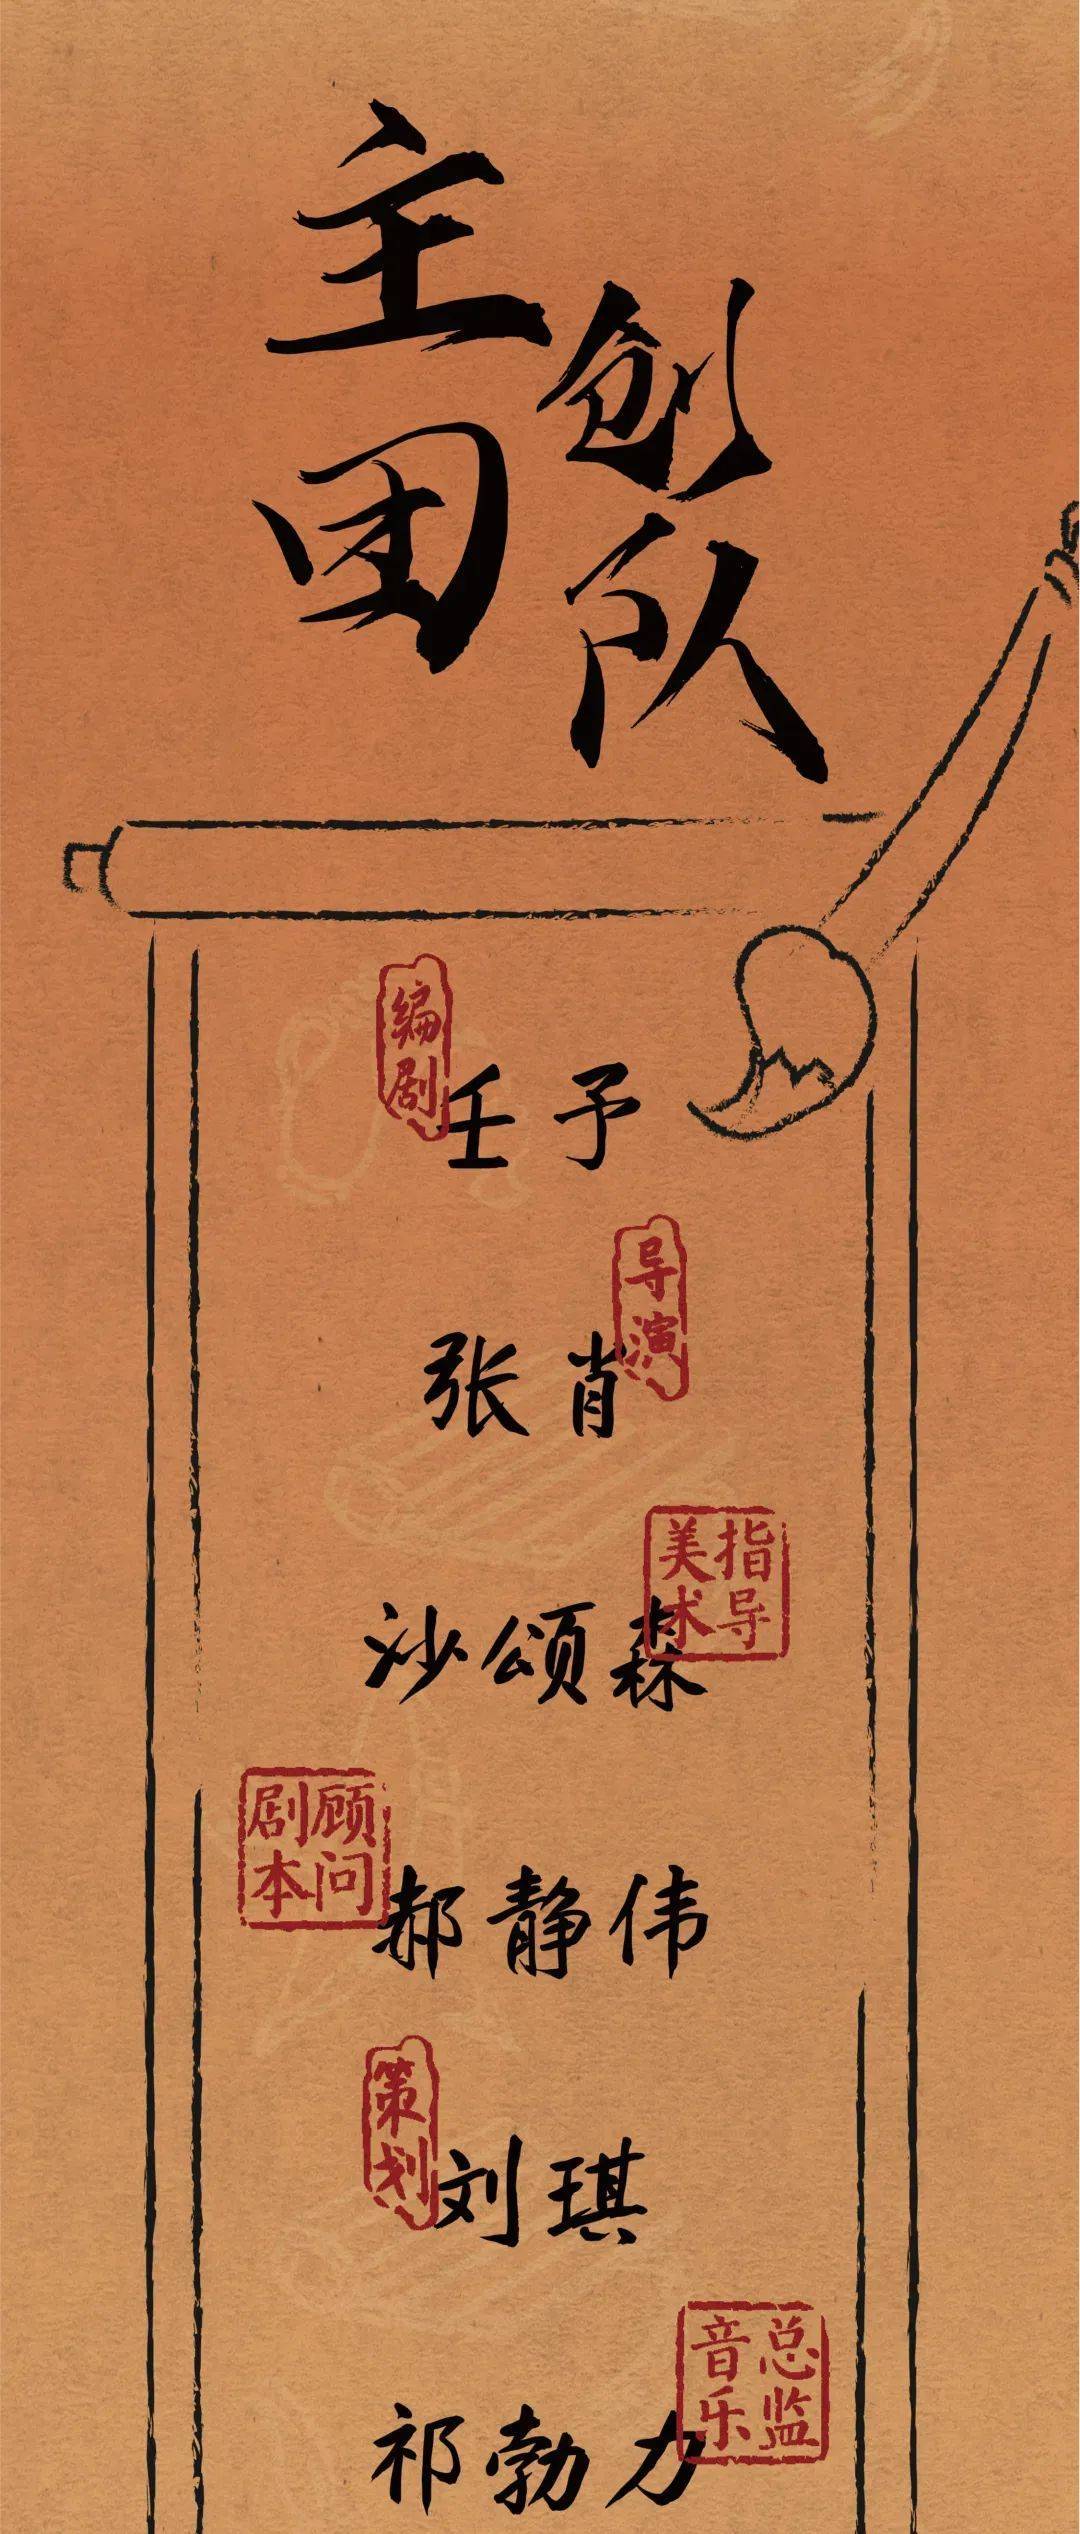 主创
团队
编剧
壬予
导演
张肖
美术指导
沙颂菻
剧本顾问
郝静伟
策划
刘琪
音乐总监
祁勃力